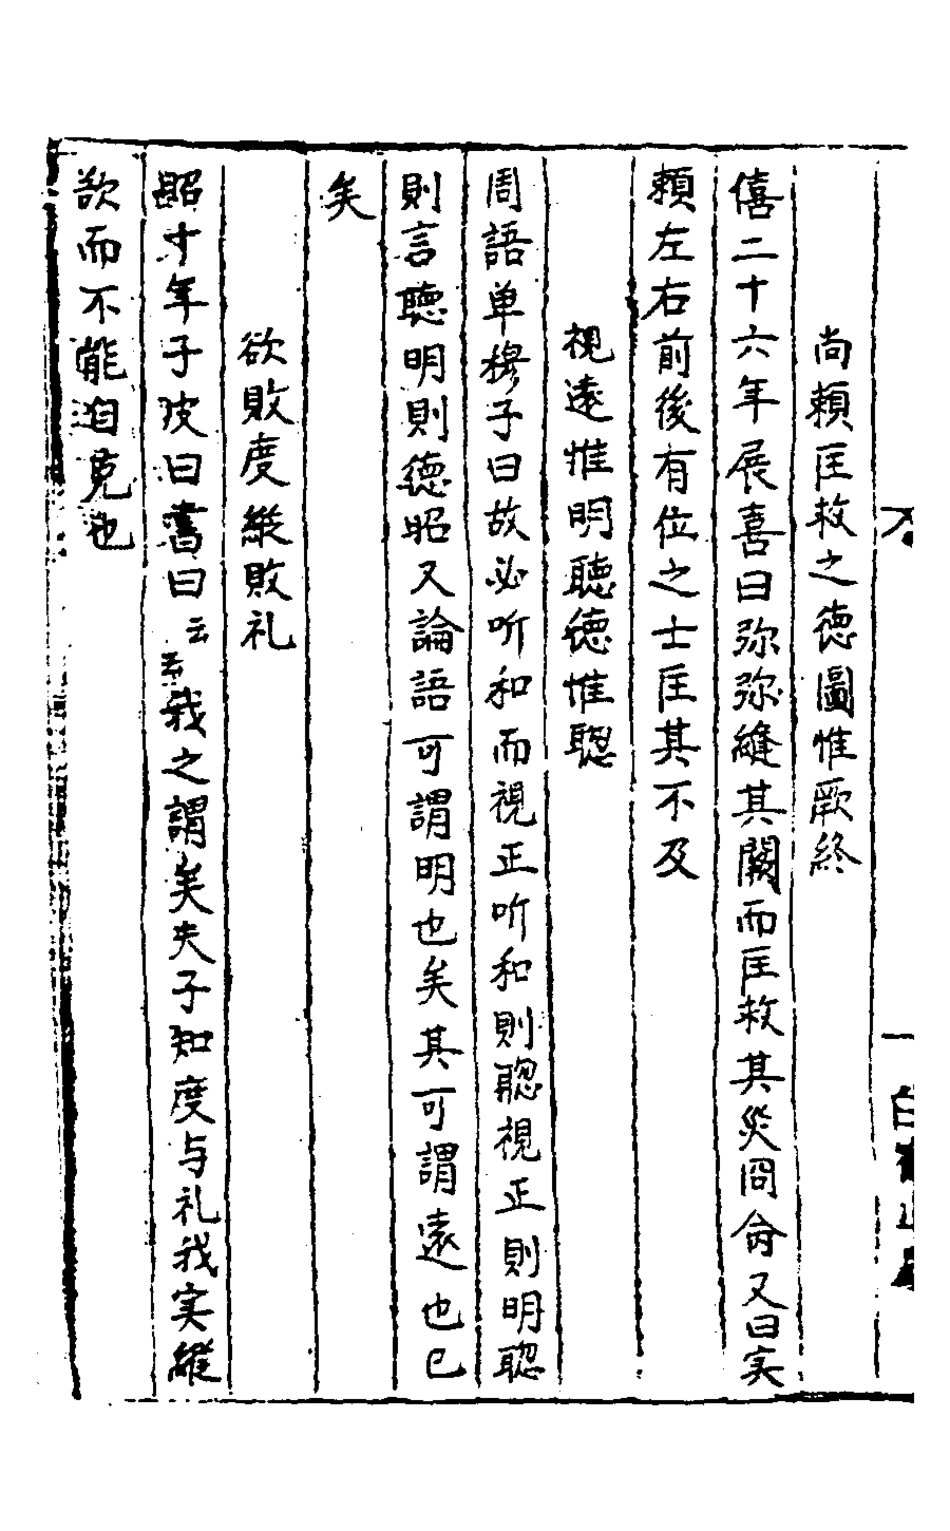 尚頼匡救之德圖惟厥終
僖二十六年展喜曰弥弥縫其闕而匡救其災冏命又曰实
頼左右前後有位之士匡其不及
視遠惟明聴德惟聦
周語单穆子曰故必听和而視正听和則聦視正則明聦
則言聴明則德昭又論語可謂明也矣其可謂遠也已
矣
欲敗度縦敗礼
昭十年子皮曰書曰云云我之謂矣夫子知度与礼我实縦
欲而不能自克也